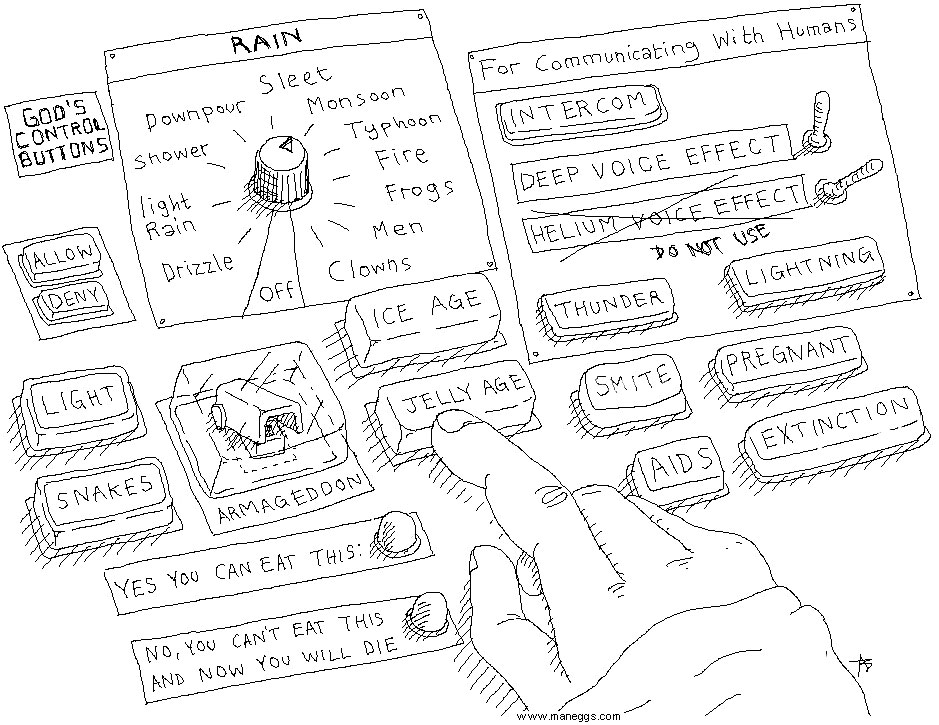 GOD'S
CONTROL
BUTTONS
RAIN
Sleet
Downpour
Monsoon
Shower
Typhoon
light
Rain
Fire
Frogs
Drizzle
Men
Off
Clowns
For Communicating With Humans
INTERCOM
DEEP VOICE EFFECT
HELIUM VOICE EFFECT
DO NOT USE
THUNDER
LIGHTNING
ALLOW
DENY
ICE AGE
LIGHT
JELLY AGE
SMITE
PREGNANT
SNAKES
ARMAGEDDON
AIDS
EXTINCTION
YES YOU CAN EAT THIS:
NO, YOU CAN'T EAT THIS
AND NOW YOU WILL DIE
www.maneggs.com